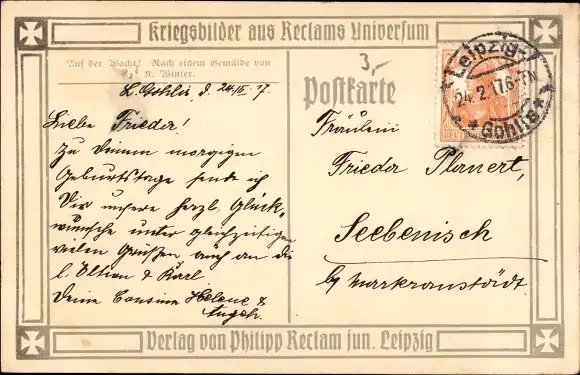 Kriegsbilder aus Reclams Universum
Auf der Wacht! Nach einem Gemälde von
K. Winter.
3,-
Postkarte
Leipzig-
24.2.17.6-7N
* Gohlis *
L. Gohlis, d. 24/II. 17.
Liebe Frieder!
Zu Deinem morgigen
Geburtstage sende ich
Dir unsere herzl. Glück-
wünsche unter gleichzeitigen
vielen Grüßen, auch an die
l. Eltern & Karl
Deine Cousine Helene &
Fräulein
Frieder Planert,
Seebenisch
by Markranstädt.
Verlag von Philipp Reclam jun. Leipzig